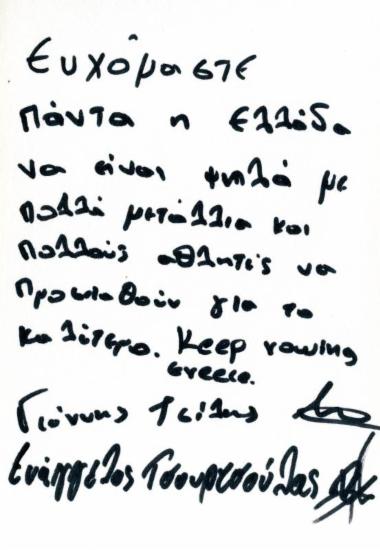 Ευχόμαστε
πάντα η Ελλάδα
να είναι ψηλά με
πολλά μετάλλια και
πολλούς αθλητές να
προωιαθούν για το
καλύτερο. Keep rowing
Greece.
Γιάννης Τσίλης
Ευάγγελος Τσουρτσούλας